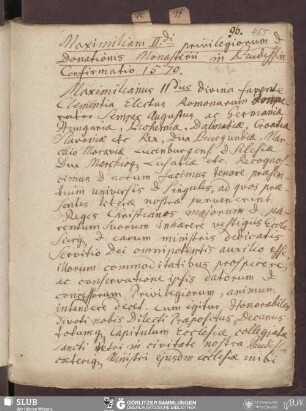 90. 465
Maximiliani II.di privilegiorum &
Donationis Monasterii in Budissin
Confirmatio 1570.
Maximilianus IIdus divina favente
Clementia Electus Romanorum Impe-
rator Semper Augustus, ac Germaniæ
Hungariæ, Bohemiæ, Dalmatiæ, Croatiæ
Slavoniæ etc Rex, Dux Burgundiæ Mar-
chio Moraviæ Lucenburgensis & Silesiæ
Dux Marchioq Lusatiæ etc. Recognos-
cimus & notum facimus tenore præsen-
tium universis & Singulis, ad quos præ-
sentes literæ nostræ pervenerint
Reges Christianos majorum & pa-
rentum Suorum inhærere vestigiis Eccle-
siisq, & earum ministris dedicatis
Servitio Dei omnipotentis auxilio esse
illorum commoditatibus prospicere,
ac conservatione ipsis datorum &
concessorum Privilegiorum, animum
intendere decet. Cum igitur Honorabiles
devoti nobis dilecti Præpositus, Decanus
totumq Capitulum Ecclesiæ collegiatæ
Sancti Petri in civitate nostra Budissin
cæteriq, Ministri ejusdem ecclesiæ inibi
SLUB
Wir führen Wissen.
GÖRLITZER SAMMLUNGEN
OBERLAUSITZISCHE BIBLIOTHEK